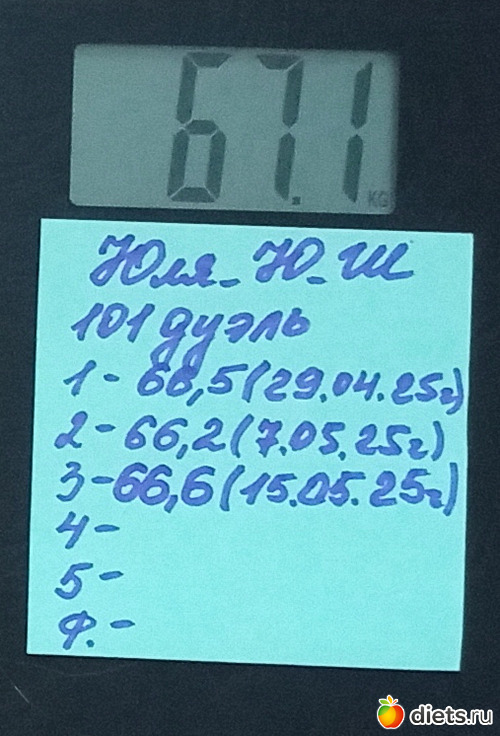 67.1
KG
Юля_Ю_Ш
101 дуэль
1- 66,5 (29.04.25г)
2- 66,2 (7.05.25г)
3-66,6 (15.05.25г)
4-
5-
Ф.-
diets.ru